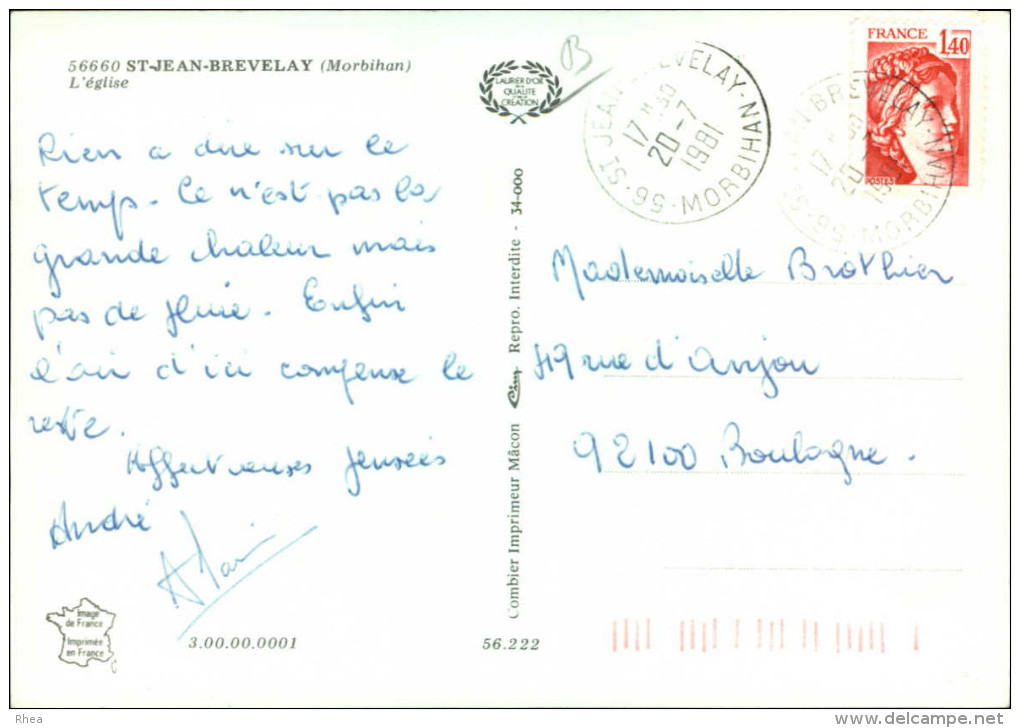 56660 ST-JEAN-BREVELAY (Morbihan)
L'église
LAURIER D'OR
DE LA
QUALITE
CREATION
B
Rien a dire sur le
temps. Ce n'est pas la
grande chaleur mais
pas de pluie. Enfin
l'air d'ici compense le
reste.
Affectueuses pensées
André
Alain
Image
de France
Imprimée
en France
3.00.00.0001
56.222
Combier Imprimeur Mâcon Cim Repro. Interdite - 34-000
ST JEAN BREVELAY-MORBIHAN
17 H 30
20-7
1981
56
FRANCE
1,40
POSTES
JEAN BREVELAY-MORBIHAN
17 H 30
20-7
56
Mademoiselle Brothier
49 rue d'Anjou
92100 Boulogne.
Rhea
http://www.delcampe.net